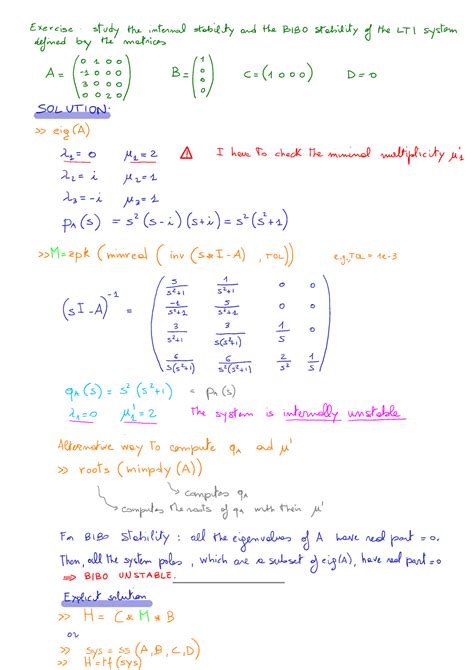 Exercise: study the internal stability and the BIBO stability of the LTI system
defined by the matrices
A = (0 1 0 0 / -1 0 0 0 / 3 0 0 0 / 0 0 2 0) B = (1 / 0 / 0 / 0) C = (1 0 0 0) D = 0
SOLUTION:
>> eig(A)
λ₁ = 0 μ₁ = 2 ⚠ I have to check the minimal multiplicity μ'₁
λ₂ = i μ₂ = 1
λ₃ = -i μ₃ = 1
p_A(s) = s²(s-i)(s+i) = s²(s²+1)
>> M = zpk(minreal(inv(s*I-A), TOL)) e.g., TOL = 1e-3
(sI-A)⁻¹ = (s/(s²+1) 1/(s²+1) 0 0 / -1/(s²+1) s/(s²+1) 0 0 / 3/(s²+1) 3/(s(s²+1)) 1/s 0 / 6/(s(s²+1)) 6/(s²(s²+1)) 2/s² 1/s)
q_A(s) = s²(s²+1) = p_A(s)
λ₁ = 0 μ'₁ = 2 The system is internally unstable
Alternative way to compute q_A and μ'
>> roots(minpoly(A))
computes q_A
computes the roots of q_A with their μ'
For BIBO stability: all the eigenvalues of A have real part = 0.
Then, all the system poles, which are a subset of eig(A), have real part = 0
⇒ BIBO UNSTABLE.
Explicit solution
>> H = C * M * B
or
>> sys = ss(A,B,C,D)
>> H = tf(sys)